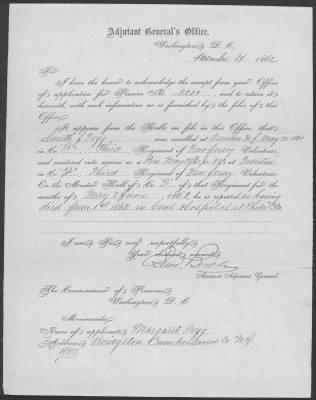 Adjutant General's Office,
Washington, D. C.,
November 28, 1862
Sir:
I have the honor to acknowledge the receipt from your Office
of application for Pension No. and to return it
herewith, with such information as is furnished by the files of this
Office.
It appears from the Rolls on file in this Office, that
Smith J Fogg was enrolled at Trenton N.J. May 28, 1861
in Co. "D", Third Regiment of New Jersey Volunteers,
and mustered into service as a at Trenton
in Co. D, Third Regiment of New Jersey Volunteers.
On the Muster Roll of Co. D of that Regiment for the
months of May & June, 1862, he is reported as having
died June 1st 1862 in Genl Hospital at
I am, Sir, very respectfully,
Your obedient servant,
Assistant Adjutant General.
The Commissioner of Pensions,
Washington, D. C.
Memoranda:
Name of applicant, Margaret Fogg
Address, Bridgeton Cumberland Co N.J.